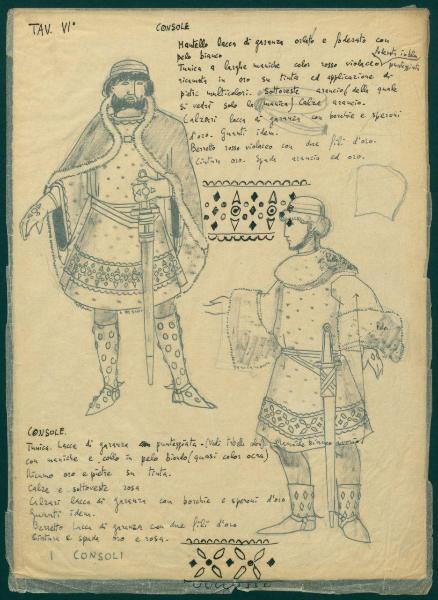 TAV. VIº
CONSOLE
Mantello lacca di garanza orlato e foderato con
pelo bianco
Tunica a larghe maniche color rosso violaceo punteggiata
ricamata in oro su tinta ed applicazione di
pietre multicolori. Sottoveste arancio (della quale
si vedrà solo la manica) Calze arancio.
Calzari lacca di garanza con borchie e speroni
d'oro. Guanti idem.
Berretto rosso violaceo con due fili d'oro.
Cintura oro. Spada arancio ed oro.
Pelo
CONSOLE.
Tunica. Lacca di garanza punteggiata. (Vedi
con maniche e collo in pelo biondo (quasi color ocra)
Ricamo oro e pietre su tinta.
Calze e sottoveste rosa
Calzari lacca di garanza con borchie e speroni d'oro
Guanti idem.
Berretto Lacca di garanza con due fili d'oro
Cintura e spada oro e rosa.
I CONSOLI